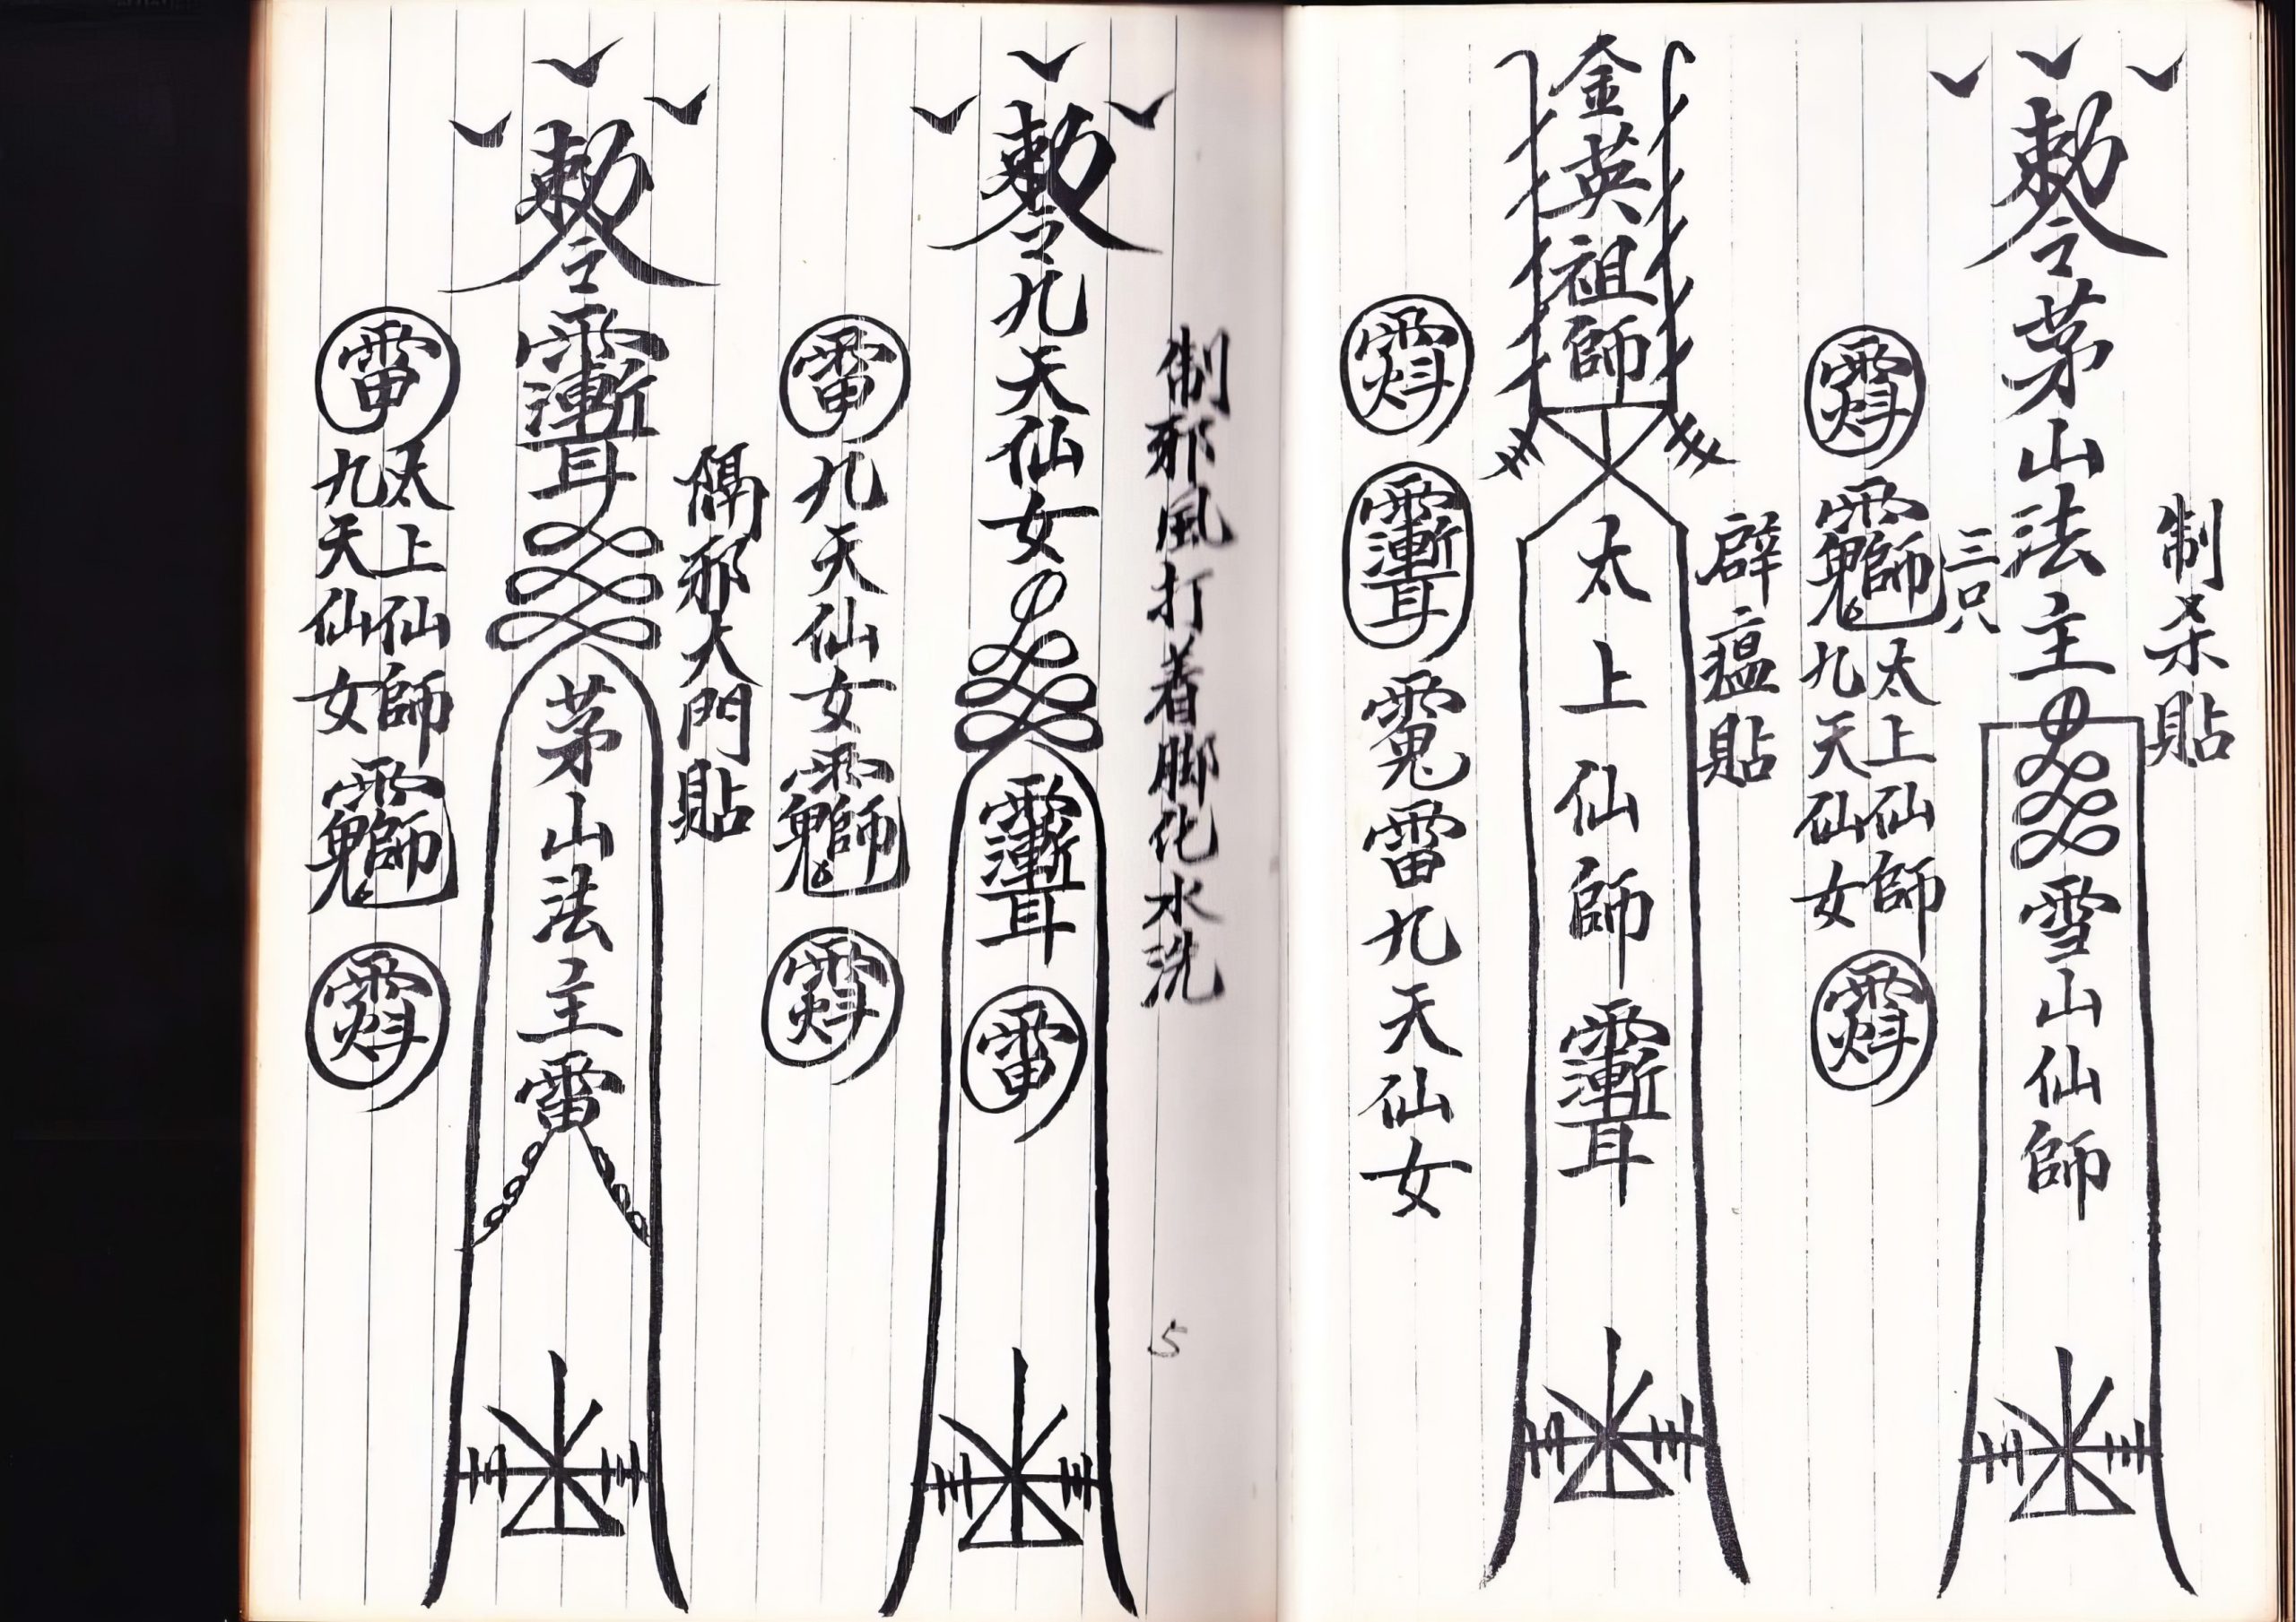 制杀貼
敕令茅山法主雪山仙師
三只
太上仙師
九天仙女
辟瘟貼
金英祖師太上仙師
雷九天仙女
制邪風打着脚化水洗
5
敕令九天仙女
九天仙女
隔邪大門貼
敕令茅山法主雷
太上仙師
九天仙女